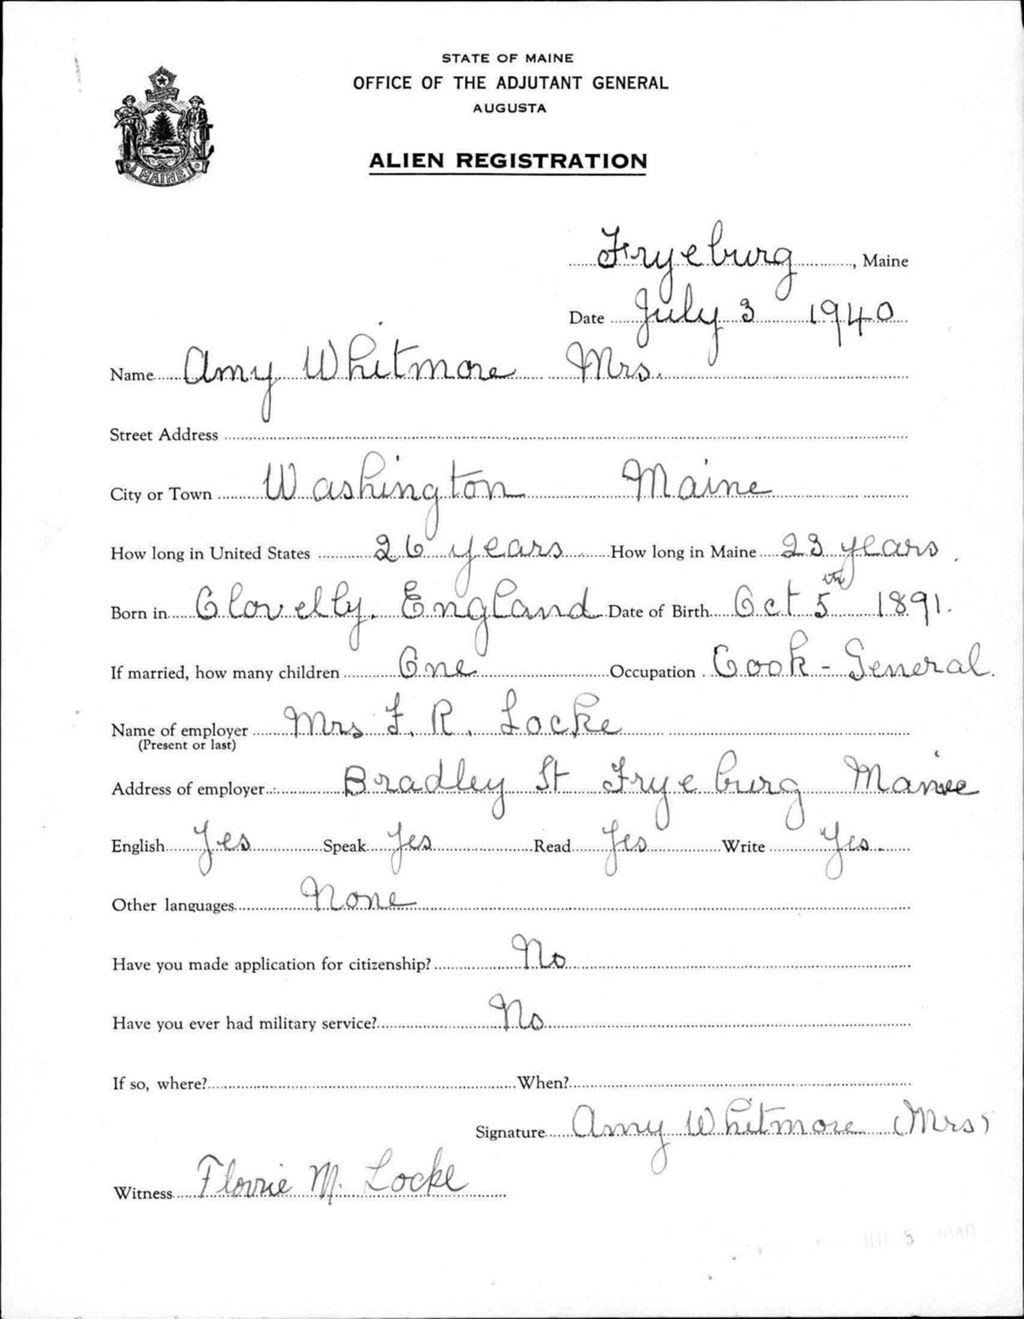 STATE OF MAINE
OFFICE OF THE ADJUTANT GENERAL
AUGUSTA
MAINE
ALIEN REGISTRATION
Fryeburg, Maine
Date July 3 1940
Name Amy Whitmore Mrs.
Street Address
City or Town Washington Maine
How long in United States 26 years How long in Maine 23 years.
Born in Clovelly, England Date of Birth Oct 5th 1891.
If married, how many children One Occupation Cook - General.
Name of employer Mrs F. R. Locke
(Present or last)
Address of employer Bradley St Fryeburg Maine
English Yes Speak Yes Read Yes Write Yes.
Other languages None
Have you made application for citizenship? No
Have you ever had military service? No
If so, where? When?
Signature Amy Whitmore (Mrs)
Witness M. Locke